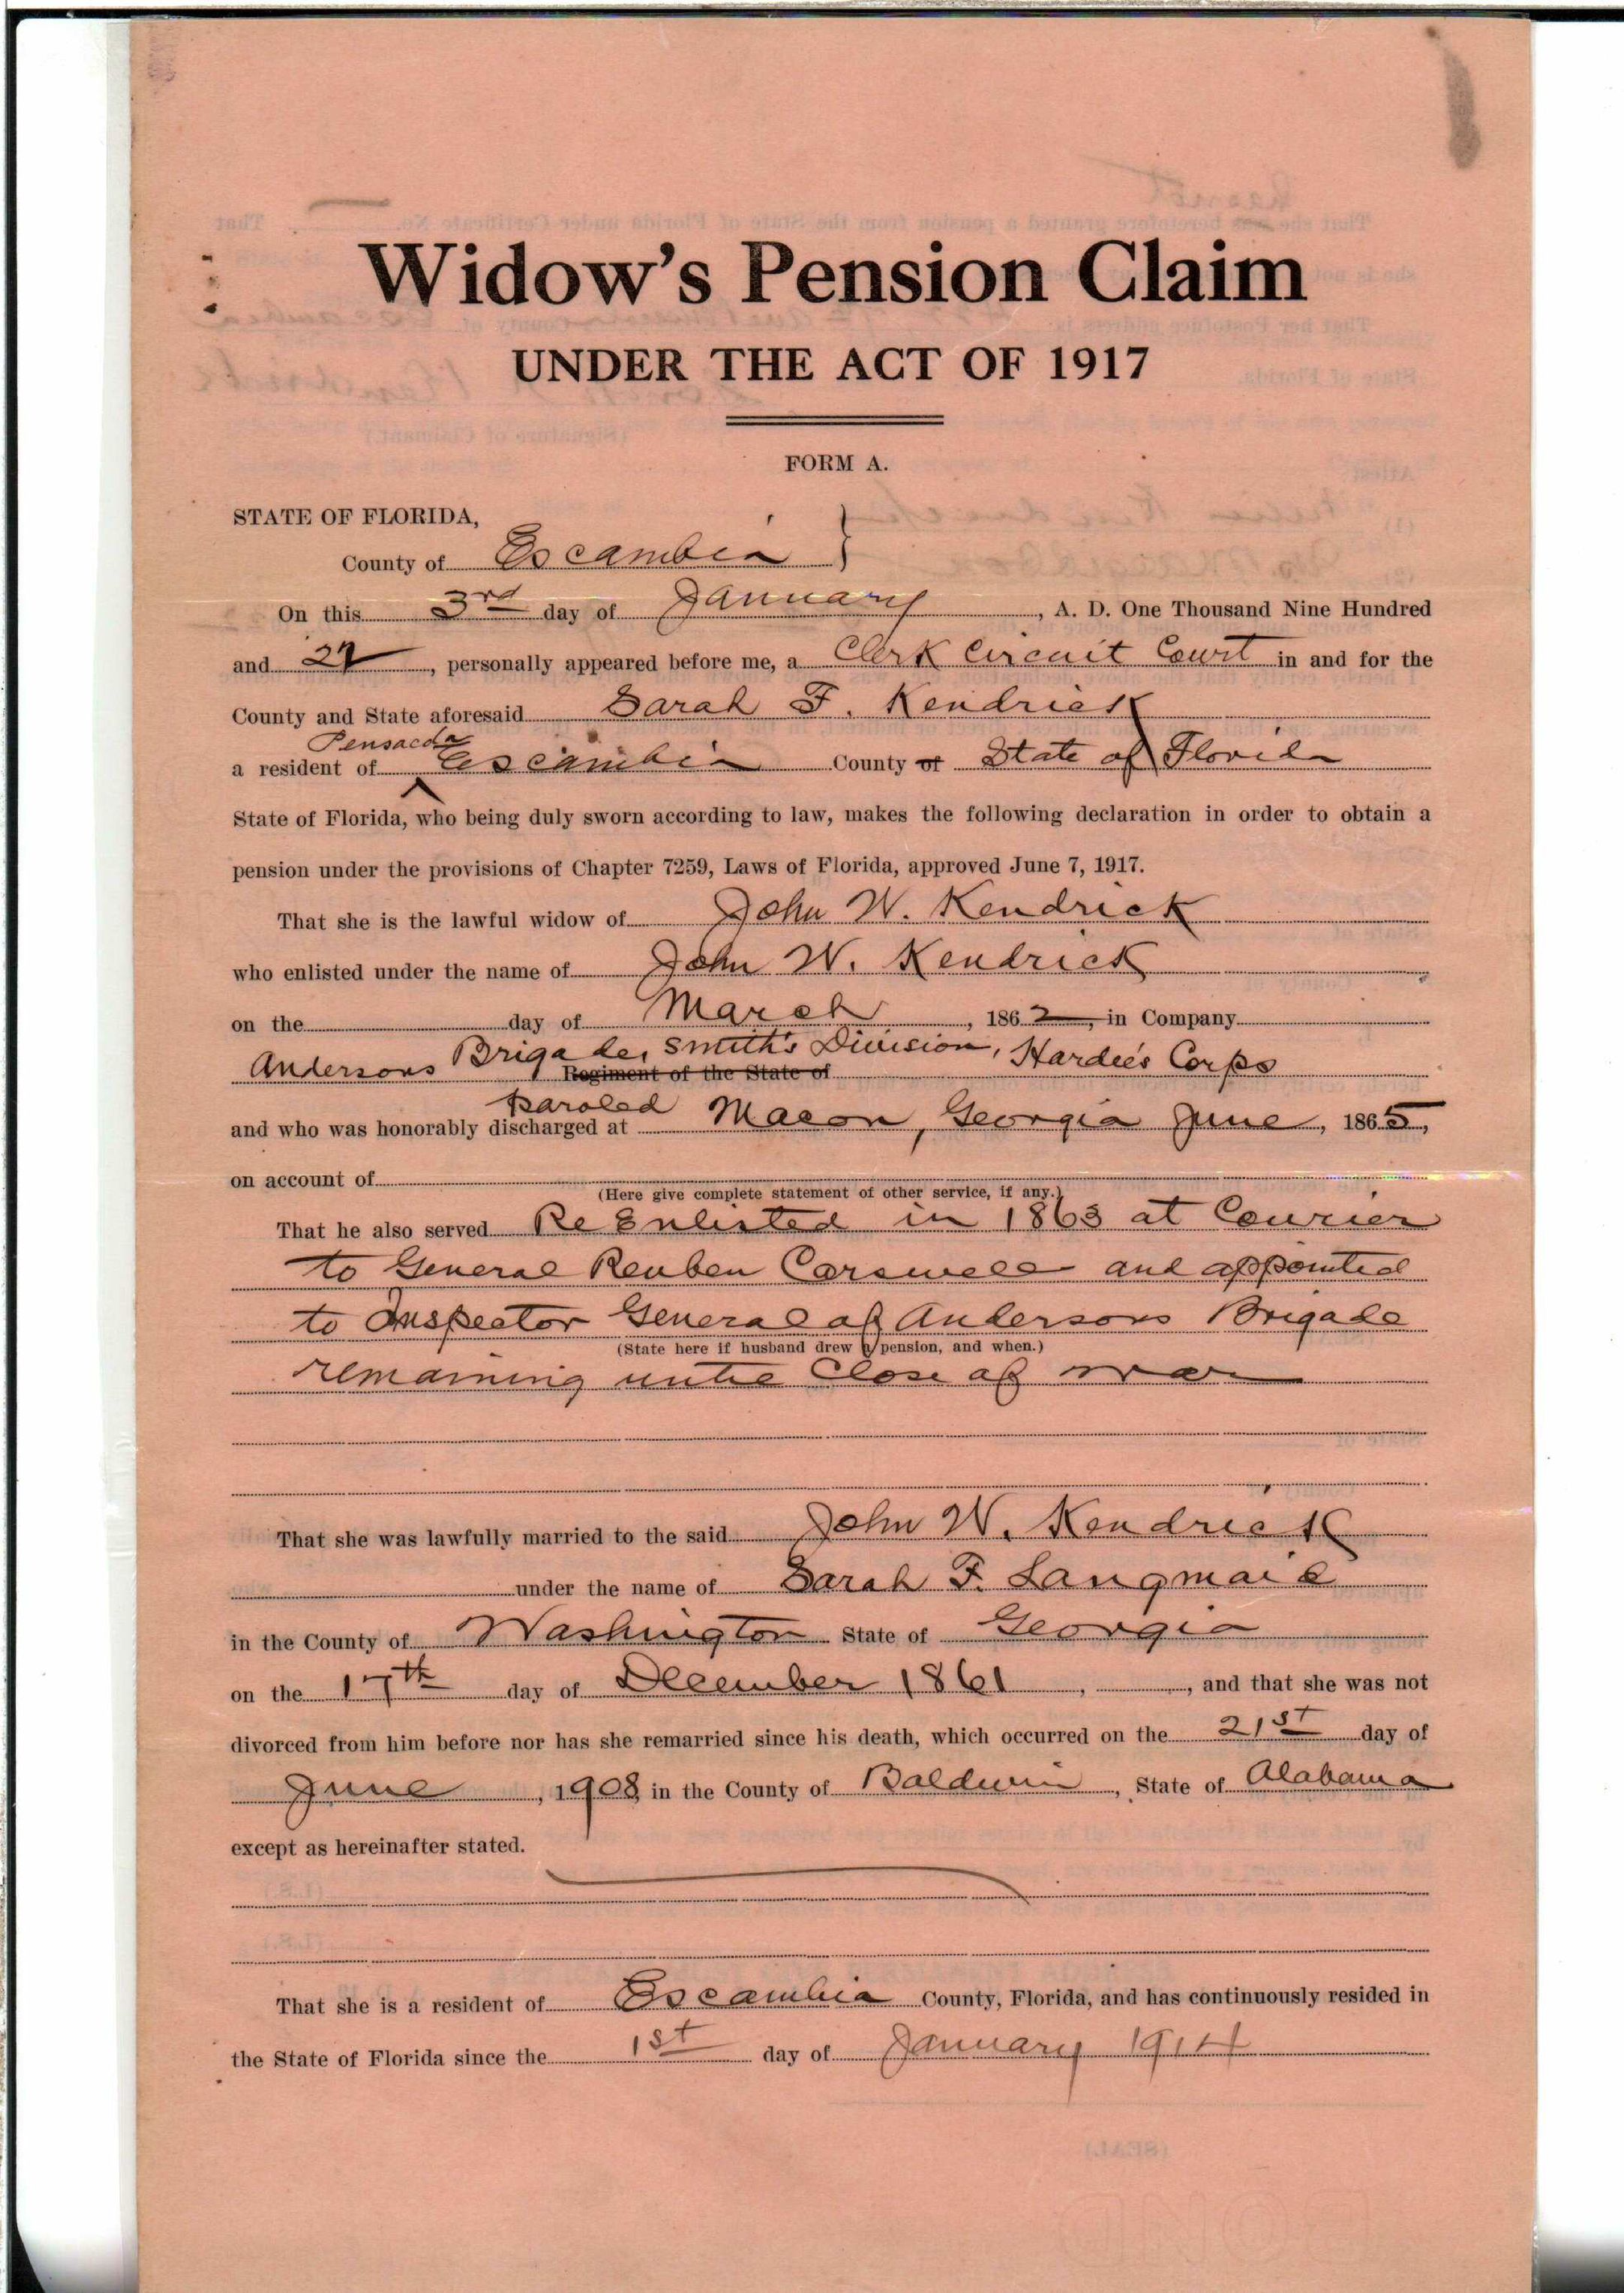 Widow's Pension Claim
UNDER THE ACT OF 1917
FORM A.
STATE OF FLORIDA,
County of Escambia }
On this 3rd day of January, A. D. One Thousand Nine Hundred
and 22, personally appeared before me, a Clerk Circuit Court in and for the
County and State aforesaid Sarah F. Kendrick
Pensacola
a resident of Escambia County of State of Florida
State of Florida, who being duly sworn according to law, makes the following declaration in order to obtain a
pension under the provisions of Chapter 7259, Laws of Florida, approved June 7, 1917.
That she is the lawful widow of John W. Kendrick
who enlisted under the name of John W. Kendrick
on the day of March, 1862, in Company
Andersons Brigade, Smith's Division, Hardee's Corps
Regiment of the State of
paroled
and who was honorably discharged at Macon, Georgia June, 1865,
on account of
(Here give complete statement of other service, if any.)
That he also served Re Enlisted in 1863 at Courier
to General Reuben Carswell and appointed
to Inspector General of Andersons Brigade
(State here if husband drew a pension, and when.)
remaining until Close of war
That she was lawfully married to the said John W. Kendrick
under the name of Sarah F. Langmaid
in the County of Washington State of Georgia
on the 17th day of December 1861, , and that she was not
divorced from him before nor has she remarried since his death, which occurred on the 21st day of
June, 1908, in the County of Baldwin, State of Alabama
except as hereinafter stated.
That she is a resident of Escambia County, Florida, and has continuously resided in
the State of Florida since the 1st day of January 1914